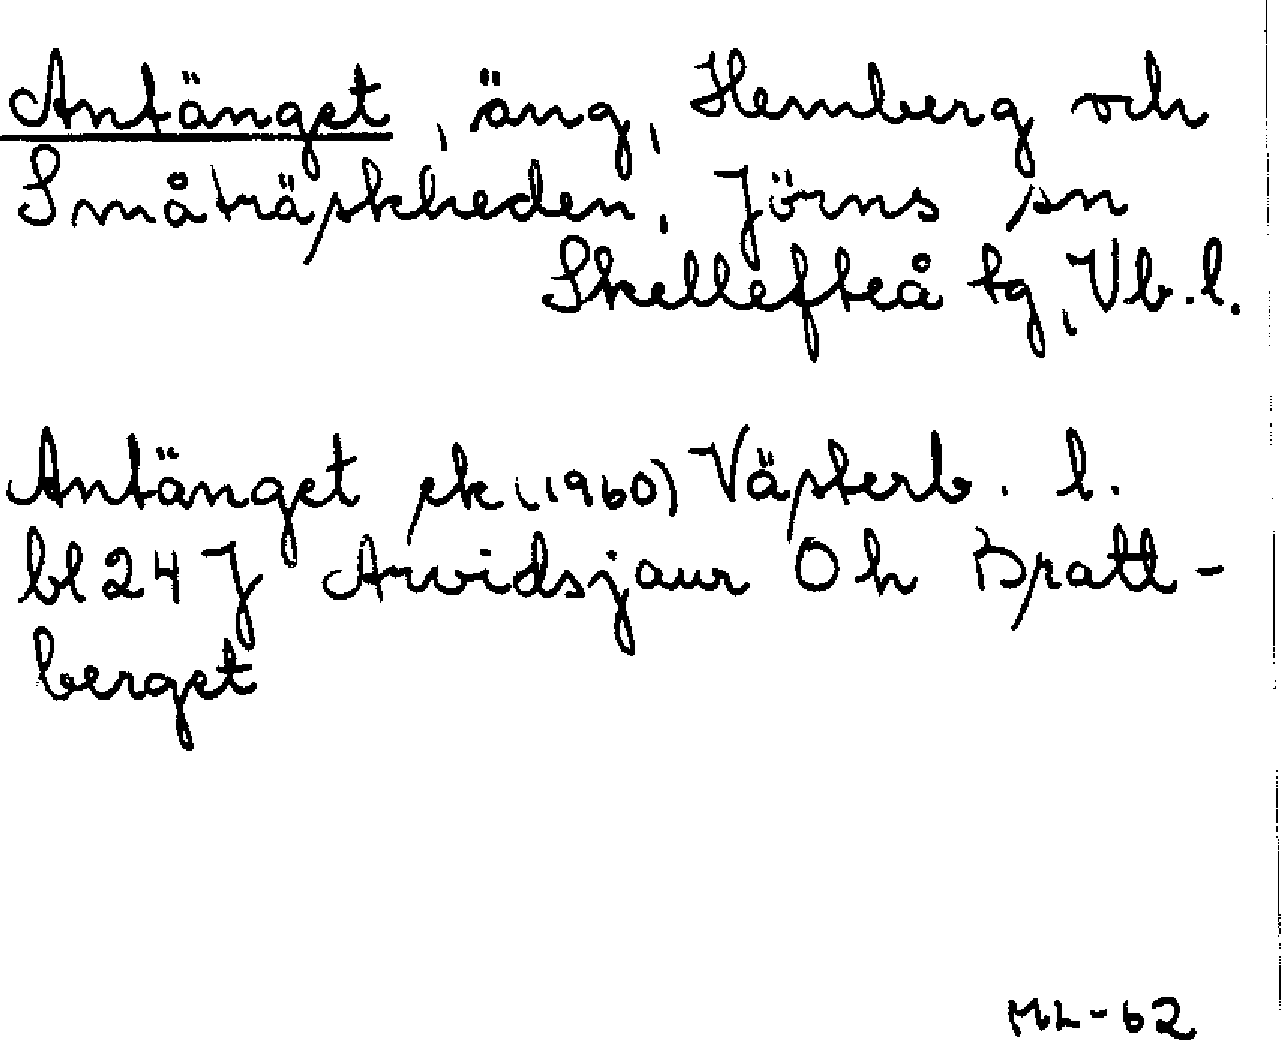 Antänget, äng, Hemberg och
Småträskheden, Jörns sn
Skellefteå tg, Vb. l.
Antänget ek (1960) Västerb. l.
bl 24 J Arvidsjaur Oh Bratt-
berget
ML-62